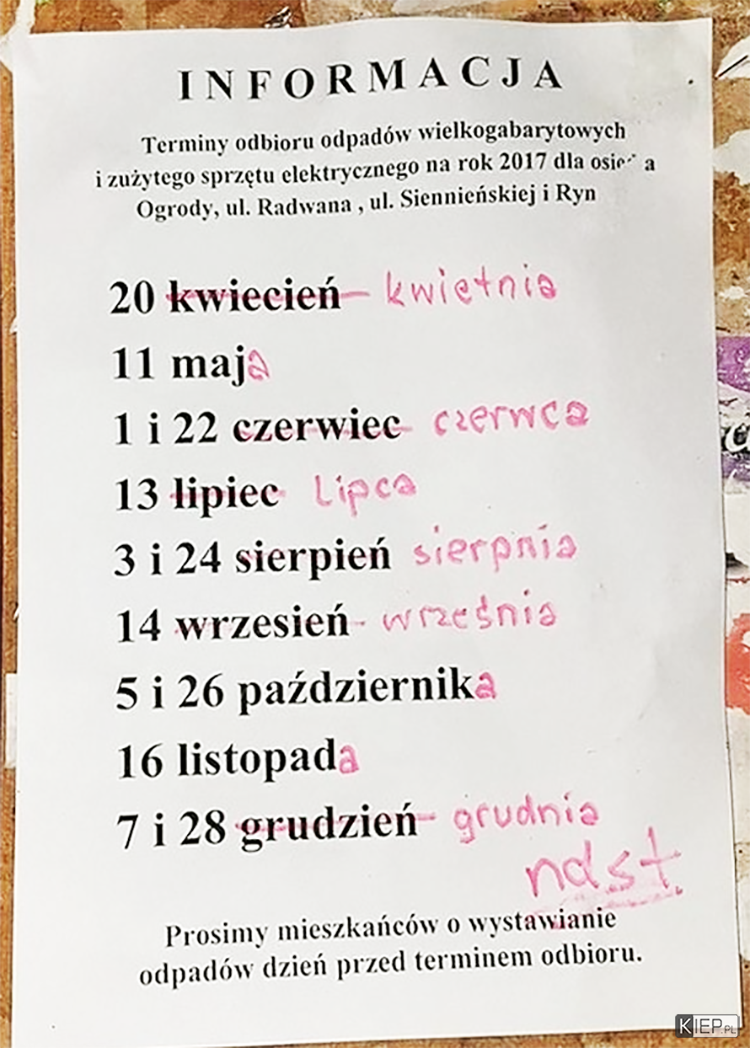 INFORMACJA
Terminy odbioru odpadów wielkogabarytowych
i zużytego sprzętu elektrycznego na rok 2017 dla
Ogrody, ul. Radwana , ul. Siennieńskiej i Ryn
20 kwiecień kwietnia
11 maja
1 i 22 czerwiec czerwca
13 lipiec Lipca
3 i 24 sierpień sierpnia
14 wrzesień września
5 i 26 października
16 listopada
7 i 28 grudzień grudnia
ndst.
Prosimy mieszkańców o wystawianie
odpadów dzień przed terminem odbioru.
KIEP.PL